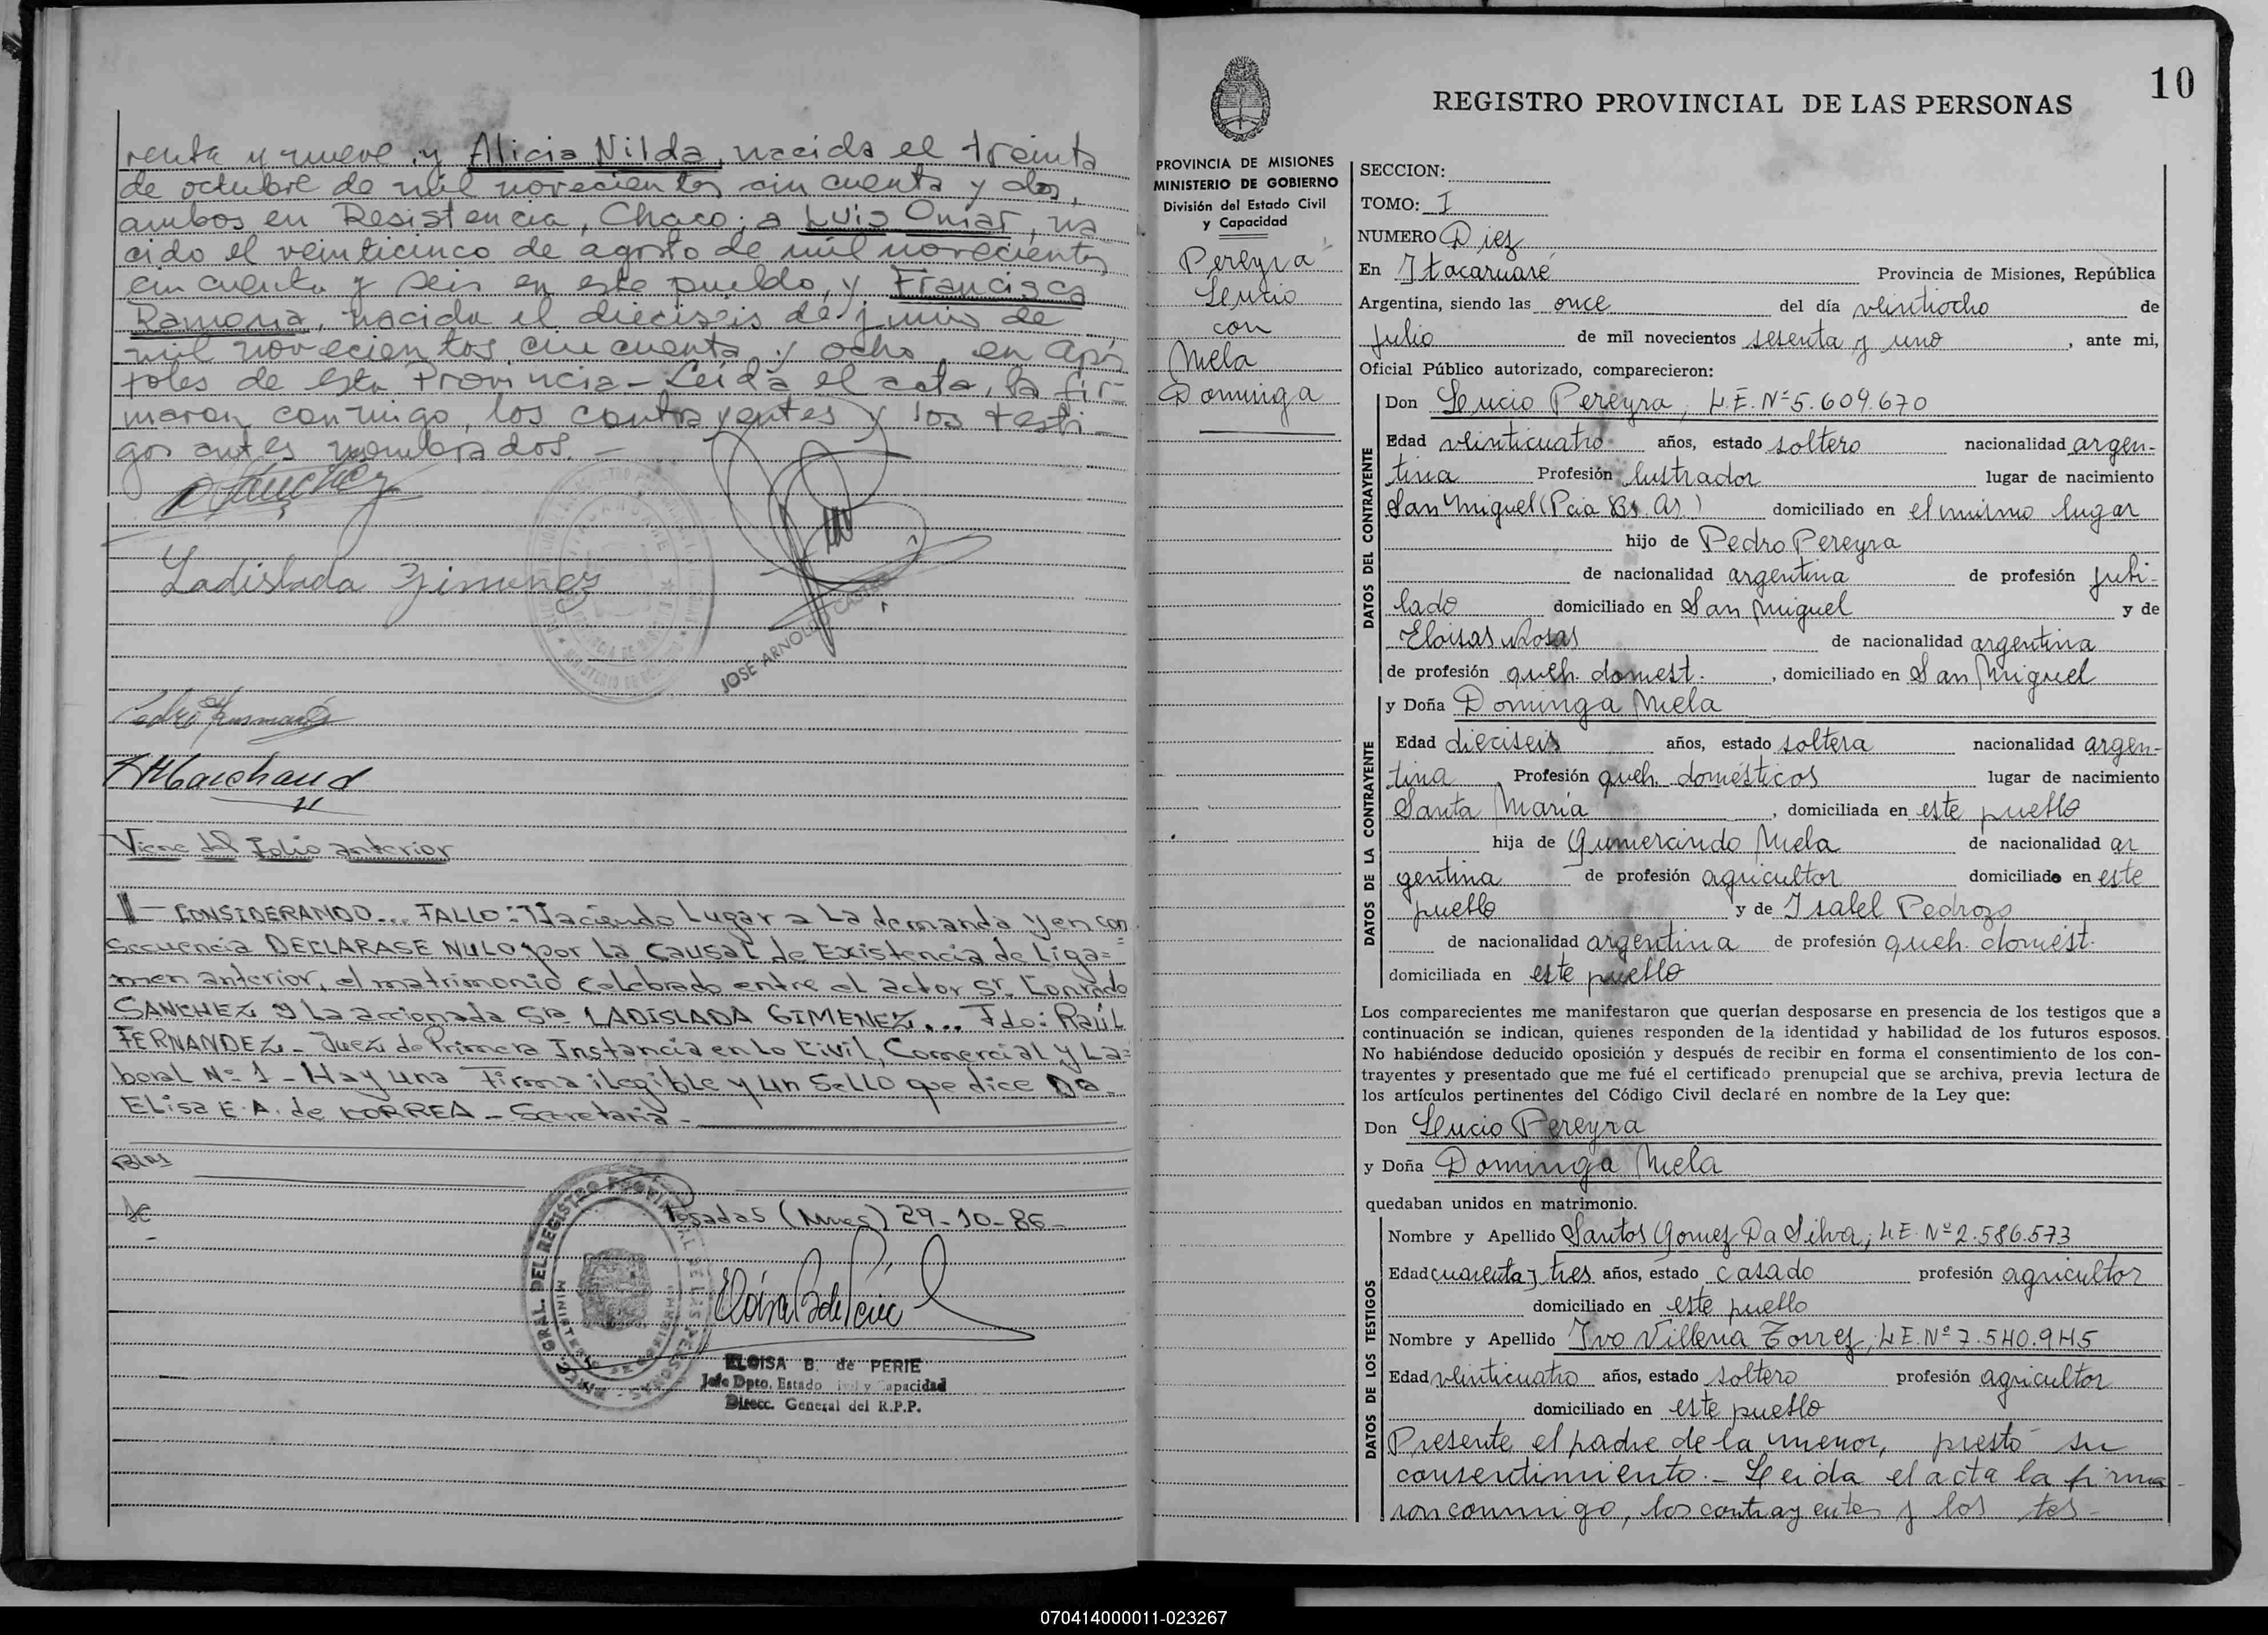 renta y nueve, y Alicia Nilda, nacida el treinta
de octubre de mil novecientos cincuenta y dos,
ambos en Resistencia, Chaco; a Luis Omar, na
cido el veinticinco de agosto de mil novecientos
cincuenta y seis en este pueblo, y Francisca
Ramona, nacida el dieciseis de junio de
mil novecientos cincuenta y ocho en Após
toles de esta Provincia - Leída el acta, la fir-
maron conmigo, los contrayentes y los testi-
gos antes nombrados. -
Ladislada Gimenez
JOSE ARNOLDO CASTRO
HMarchand
Viene del Folio anterior
II - CONSIDERANDO... FALLO: Haciendo Lugar a La demanda y en con
secuencia DECLARASE NULO por La causal de Existencia de Liga=
men anterior, el matrimonio celebrado entre el actor Sr. Conrado
SANCHEZ y La accionada Sra LADISLADA GIMENEZ... Fdo: Raúl
FERNANDEZ - Juez de Primera Instancia en Lo Civil, Comercial y La=
boral Nº 1 - Hay una Firma ilegible y un Sello que dice Da
ELisa E. A. de CORREA - Secretaria -
Posadas (Mnes) 29-10-86-
ELOISA B. de PERIE
Jefe Dpto. Estado Civil y Capacidad
Direcc. General del R.P.P.
10
REGISTRO PROVINCIAL DE LAS PERSONAS
PROVINCIA DE MISIONES
MINISTERIO DE GOBIERNO
División del Estado Civil
y Capacidad
Pereyra
Lucio
con
Mela
Dominga
SECCION:
TOMO: I
NUMERO Diez
En Itacaruaré Provincia de Misiones, República
Argentina, siendo las once del día veintiocho de
Julio de mil novecientos sesenta y uno, ante mi,
Oficial Público autorizado, comparecieron:
DATOS DEL CONTRAYENTE
Don Lucio Pereyra, L.E. Nº 5.609.670
Edad veinticuatro años, estado soltero nacionalidad argen-
tina Profesión lustrador lugar de nacimiento
San Miguel (Pcia Bs. As.) domiciliado en el mismo lugar
hijo de Pedro Pereyra
de nacionalidad argentina de profesión jubi-
lado domiciliado en San Miguel y de
Eloisas Rosas de nacionalidad argentina
de profesión queh. domest., domiciliado en San Miguel
DATOS DE LA CONTRAYENTE
y Doña Dominga Mela
Edad dieciseis años, estado soltera nacionalidad argen-
tina, Profesión queh. domésticos lugar de nacimiento
Santa María, domiciliada en este pueblo
hija de Gumercindo Mela de nacionalidad ar
gentina de profesión agricultor domiciliado en este
pueblo y de Isabel Pedrozo
de nacionalidad argentina de profesión queh. domést.
domiciliada en este pueblo
Los comparecientes me manifestaron que querían desposarse en presencia de los testigos que a
continuación se indican, quienes responden de la identidad y habilidad de los futuros esposos.
No habiéndose deducido oposición y después de recibir en forma el consentimiento de los con-
trayentes y presentado que me fué el certificado prenupcial que se archiva, previa lectura de
los artículos pertinentes del Código Civil declaré en nombre de la Ley que:
Don Lucio Pereyra
y Doña Dominga Mela
quedaban unidos en matrimonio.
DATOS DE LOS TESTIGOS
Nombre y Apellido Santos Gomez Da Silva; L.E. Nº 2.586.573
Edad cuarenta y tres años, estado casado profesión agricultor
domiciliado en este pueblo
Nombre y Apellido Ivo Villena Torrez, L.E. Nº 7.540.945
Edad veinticuatro años, estado soltero profesión agricultor
domiciliado en este pueblo
Presente el padre de la menor, prestó su
consentimiento. - Leida el acta la firma
ron conmigo, los contrayentes y los tes-
070414000011-023267